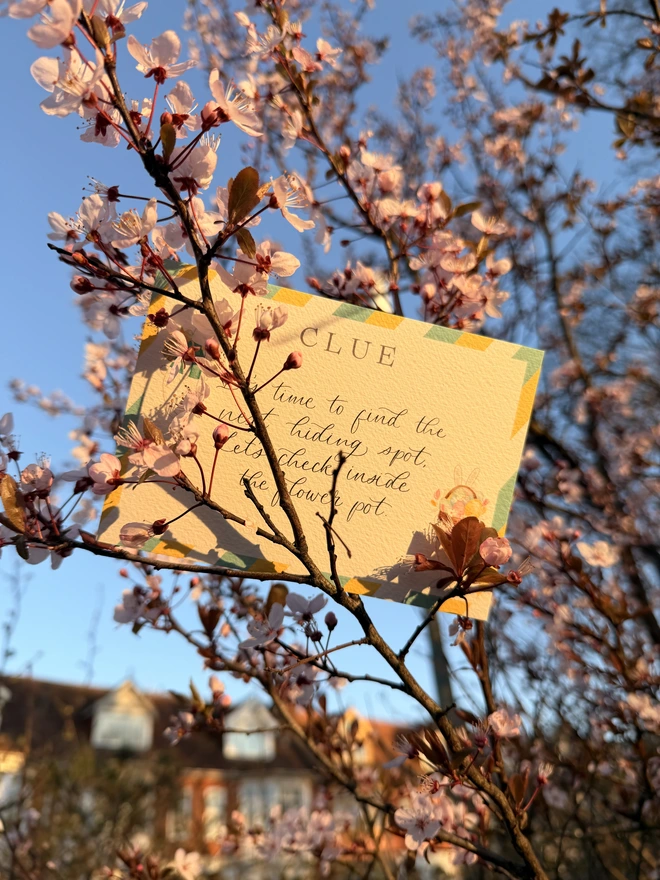 CLUE
time to find the
next hiding spot.
Lets check inside
the flower pot.